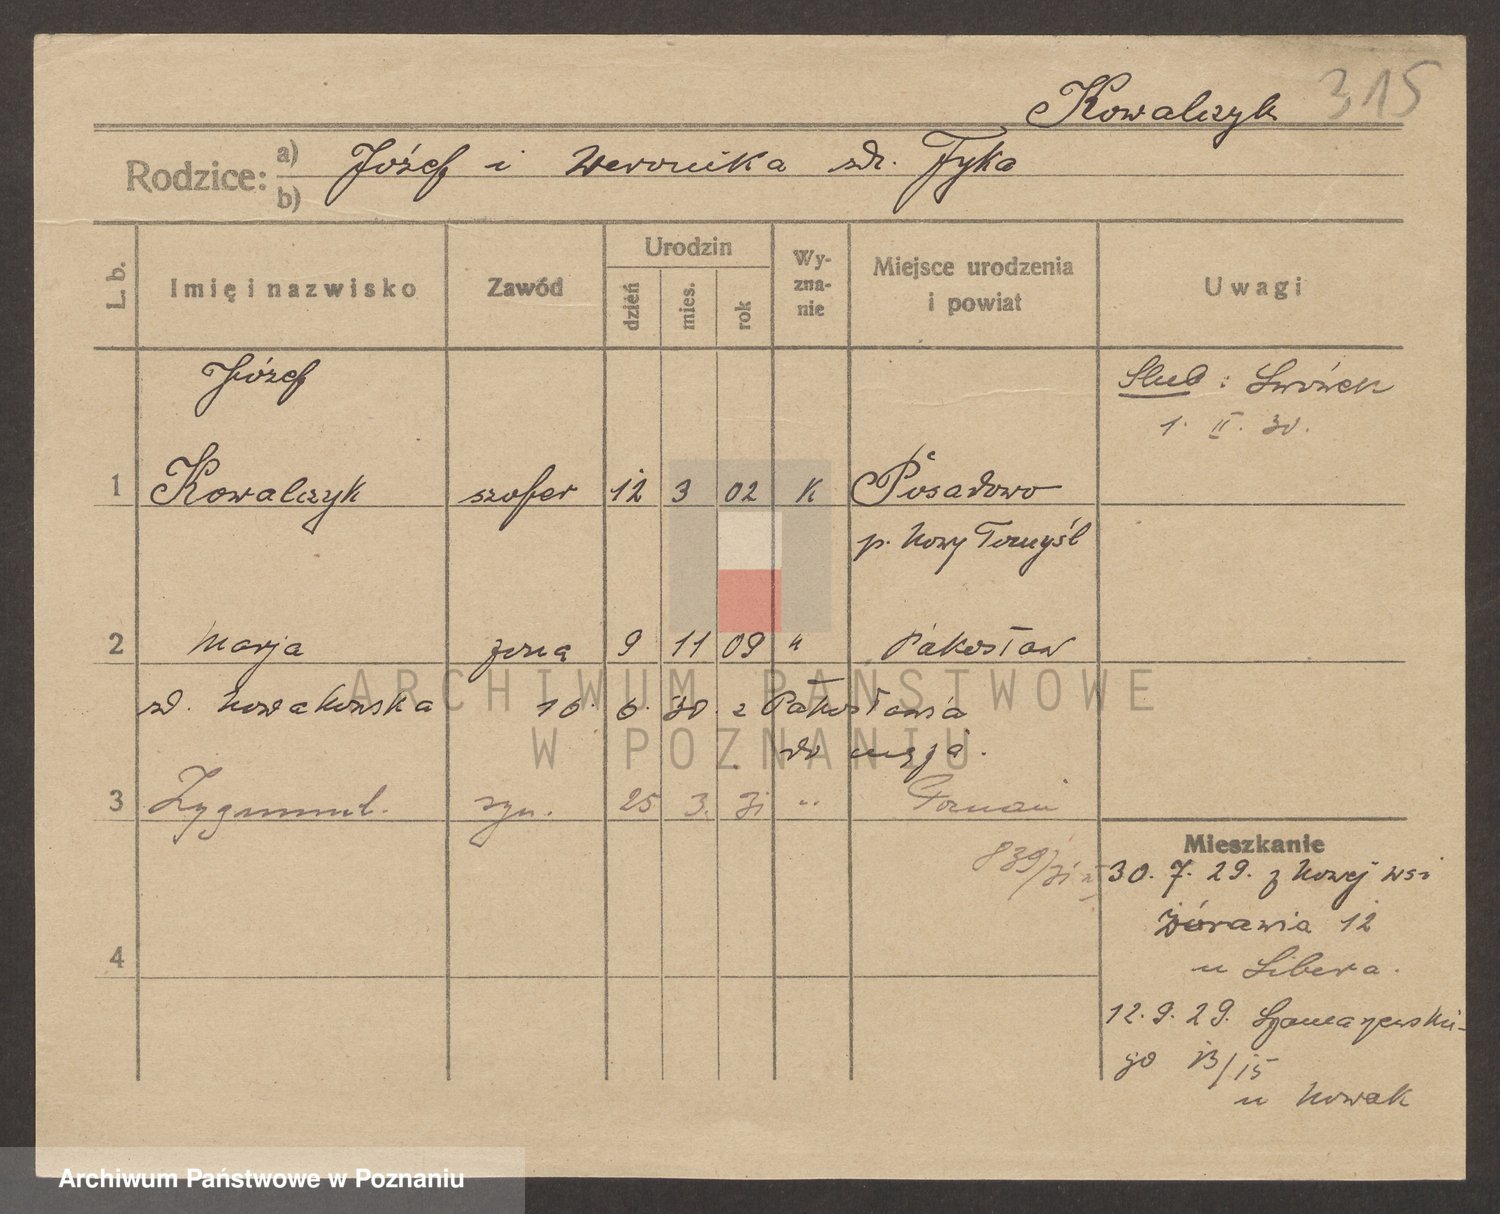 Kowalczyk 315
Rodzice: a) b) Józef i Weronika zd. Fyka
L. b. Imię i nazwisko Zawód Urodzin dzień mies. rok Wy-zna-nie Miejsce urodzenia i powiat Uwagi
Józef Ślub : Lwówek
1. II. 30.
1 Kowalczyk szofer 12 3 02 K Posadowo
p. Nowy Tomyśl
2 Marja żona 9 11 09 " Pakosław
zd. Nowakowska 16. 6. 30. z Pakosławia
do męża.
3 Zygmunt. syn. 25 3. 31 " Poznań
839/31
Mieszkanie
30. 7. 29. z Nowej wsi
Żórawia 12
u Libera.
4
12. 9. 29. Szamarzewskie-
go 13/15
u Nowak
ARCHIWUM PAŃSTWOWE
W POZNANIU
Archiwum Państwowe w Poznaniu